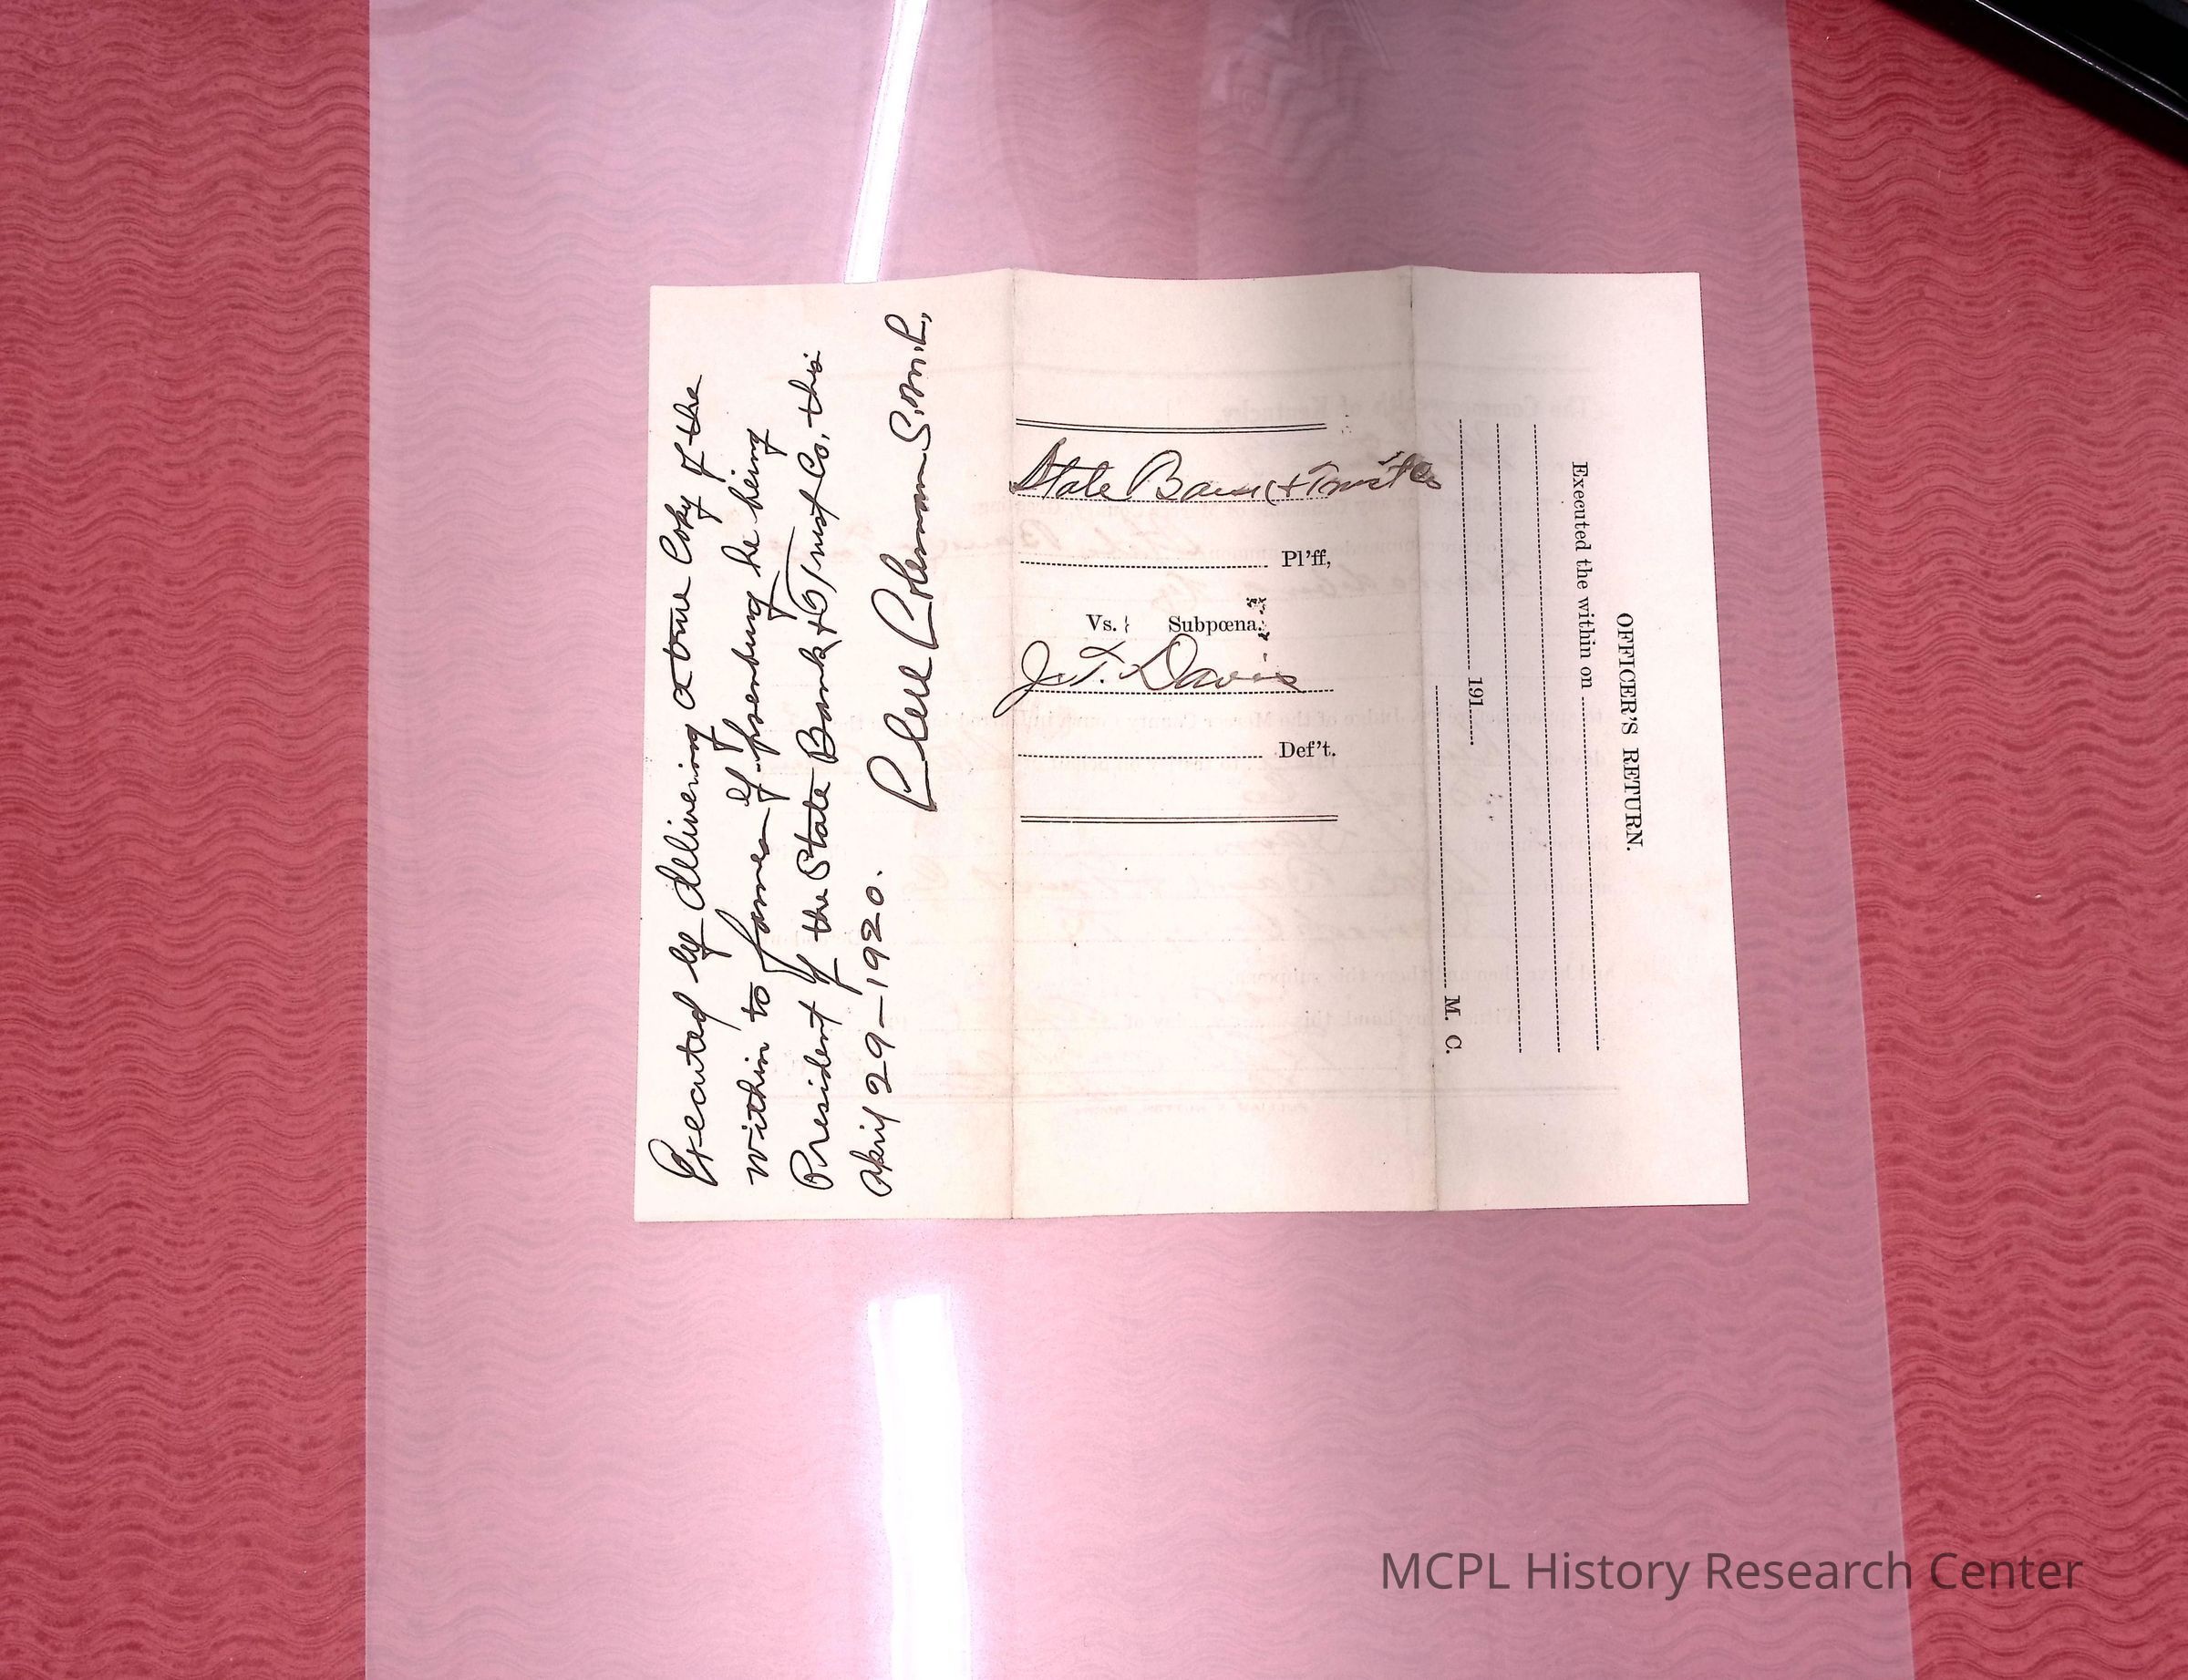 Executed by delivering a true Copy of the
within to James H. Isenburg he being
President of the State Bank & Trust Co, this
April 29-1920.
Coleman S.M.C,
State Bank & Trust Co
Pl'ff,
Vs. } Subpœna.
J. T. Davis
Def't.
OFFICER'S RETURN.
Executed the within on
191
M. C.
MCPL History Research Center